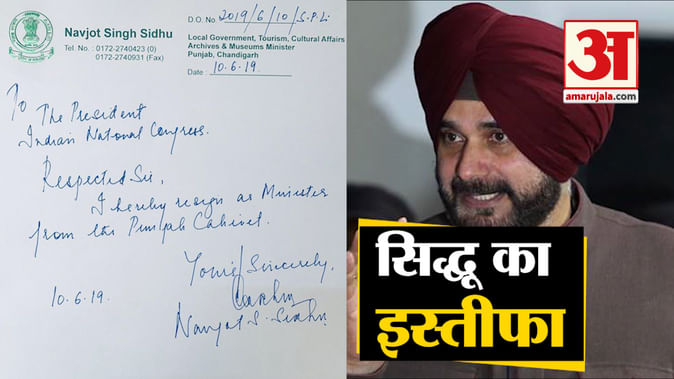 Navjot Singh Sidhu
Tel. No. : 0172-2740423 (0)
0172-2740931 (Fax)
D.O. No 2019/6/10/S.P.Li
Local Government, Tourism, Cultural Affairs
Archives & Museums Minister
Punjab, Chandigarh
Date : 10.6.19.
To
The President
Indian National Congress.
Respected Sir,
I hereby resign as Minister
from the Punjab Cabinet.
Yours Sincerely,
10.6.19.
Navjot S. Sidhu
अ
amarujala.com
सिद्धू का
इस्तीफा